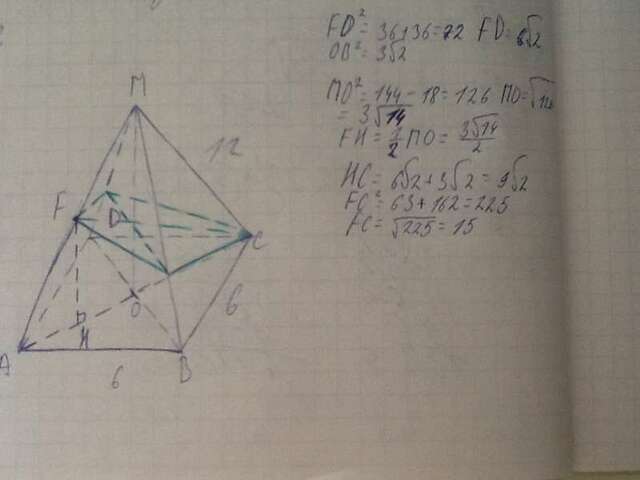 FD² = 36+36=72 FD= 6√2
OB² = 3√2
MO² = 144 - 18 = 126 MO=√126
= 3√14
FH = 1/2 MO = 3√14/2
HC = 6√2 + 3√2 = 9√2
FC² = 63 + 162 = 225
FC = √225 = 15
M
12
F
D
C
O
H
6
A
B
6